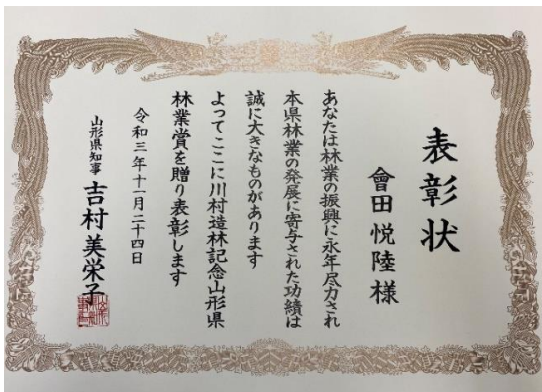 表彰状
會田悦陸様
あなたは林業の振興に永年尽力され
本県林業の発展に寄与された功績は
誠に大きなものがあります
よってここに川村造林記念山形県
林業賞を贈り表彰します
令和三年十一月二十四日
山形県知事 吉村美栄子